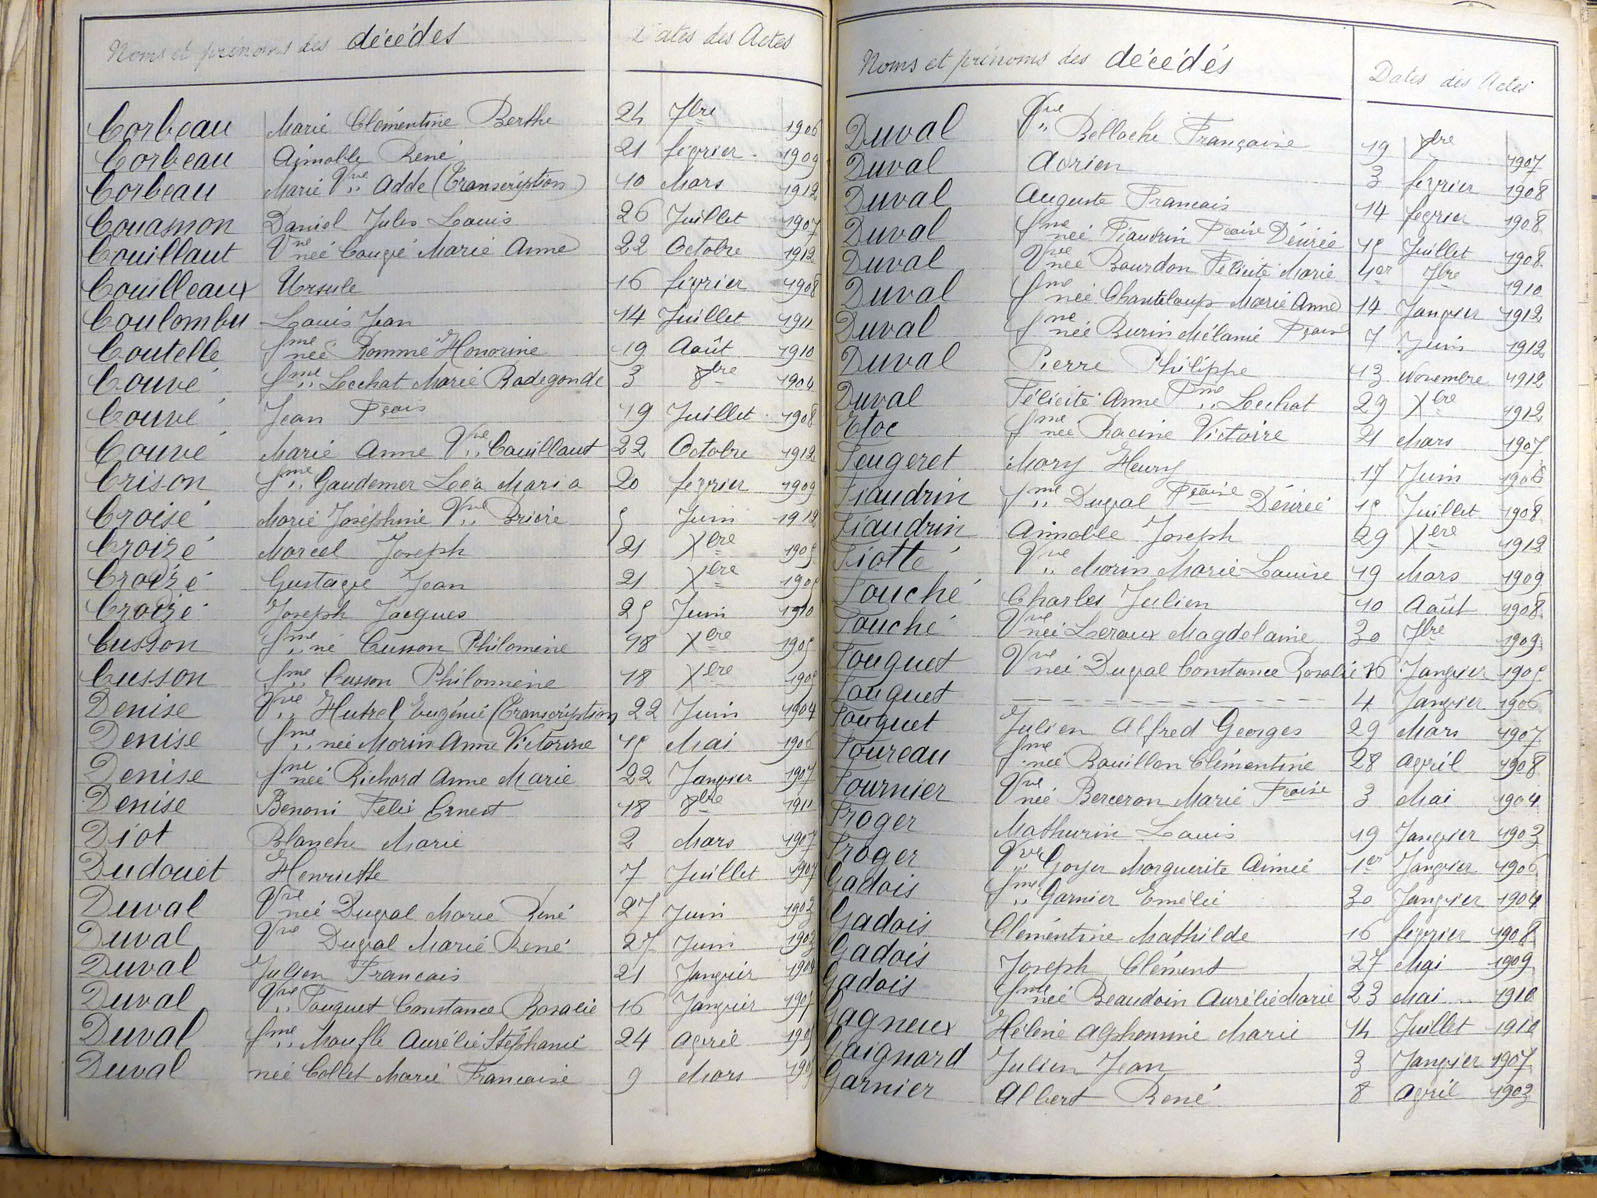 Noms et prénoms des décédés Dates des Actes
Corbeau Marie Clémentine Berthe 24 7bre 1906
Corbeau Aimable René 21 février 1909
Corbeau Marie Vve " Adde (Transcription) 10 Mars 1912
Couasnon Daniel Jules Louis 26 Juillet 1907
Couillaut Vve née Couvé Marie Anne 22 Octobre 1912
Couilleaux Ursule 16 février 1908
Coulombu Louis Jean 14 Juillet 1911
Coutelle fme née Romme Honorine 19 Août 1910
Couvé fme " Lechat Marie Radegonde 3 8bre 1904
Couvé Jean Fçois 19 Juillet 1908
Couvé Marie Anne Vve " Couillaut 22 Octobre 1912
Crison fme " Gaudemer Léa Maria 20 février 1909
Croisé Marie Joséphine Vve " Brière 5 Juin 1912
Croizé Marcel Joseph 21 Xbre 1905
Croizé Gustave Jean 21 Xbre
Croizé Joseph Jacques 25 Juin 1910
Cusson fme " né Cusson Philomène 18 Xbre 1905
Cusson fme " Cusson Philomène 18 Xbre 1905
Denise Vve " Hutrel Eugénie (Transcription) 22 Juin 1904
Denise fme " née Morin Anne Victorine 15 Mai 1906
Denise fme née Richard Anne Marie 22 Janvier 1907
Denise Benoni Félix Ernest 18 8bre 1911
Diot Blanche Marie 2 Mars 1907
Dudouet Henriette 7 Juillet 1907
Duval Vve née Duval Marie René 27 Juin 1903
Duval Vve Duval Marie René 27 Juin 1903
Duval Julien Francois 21 Janvier 1904
Duval Vve " Fouquet Constance Rosalie 16 Janvier
Duval fme " Moufle Aurélie Stéphanie 24 Avril
Duval née Collet Marie Francoise 9 Mars
Noms et prénoms des décédés Dates des Actes
Duval Vve " Belloche Françoise 19 7bre 1907
Duval Adrien 3 février 1908
Duval Auguste Francois 14 février 1908
Duval fme née Fiaudrin Fçoise Désirée 15 Juillet 1908
Duval Vve née Bourdon Félicité Marie 1er 7bre 1910
Duval fme née Chanteloup Marie Anne 14 Janvier 1912
Duval fme née Burin Mélanie Fçoise 7 Juin 1912
Duval Pierre Philippe 13 Novembre 1912
Duval Félicité Anne fme " Lechat 29 Xbre 1912
fme née Racine Victoire 21 Mars 1907
Feugeret Mary Henry 17 Juin 1906
Fiaudrin fme " Duval Fçoise Désirée 15 Juillet 1908
Fiaudrin Aimable Joseph 29 Xbre 1912
Fiotté Vve " Morin Marie Louise 19 Mars 1909
Fouché Charles Julien 10 Août 1908
Fouché Vve née Leroux Magdelaine 30 7bre 1909
Fouquet Vve née Duval Constance Rosalie 16 Janvier 1905
Fouquet ---------- 4 Janvier 1906
Fouquet Julien Alfred Georges 29 Mars 1907
Foureau fme née Bouillon Clémentine 28 Avril 1908
Fournier Vve née Berceron Marie Fçoise 3 Mai 1904
Froger Mathurin Louis 19 Janvier 1903
Froger Vve " Goyer Marguerite Aimée 1er Janvier 1906
Gadois fme " Garnier Emélie 30 Janvier 1904
Gadois Clémentine Mathilde 16 février 1908
Gadois Joseph Clément 27 Mai 1909
Gadois fme née Beaudoin Aurélie Marie 23 Mai 1910
Gagneux Hélène Alphonsine Marie 14 Juillet 1910
Gaignard Julien Jean 3 Janvier 1907
Garnier Albert René 8 Avril 1903